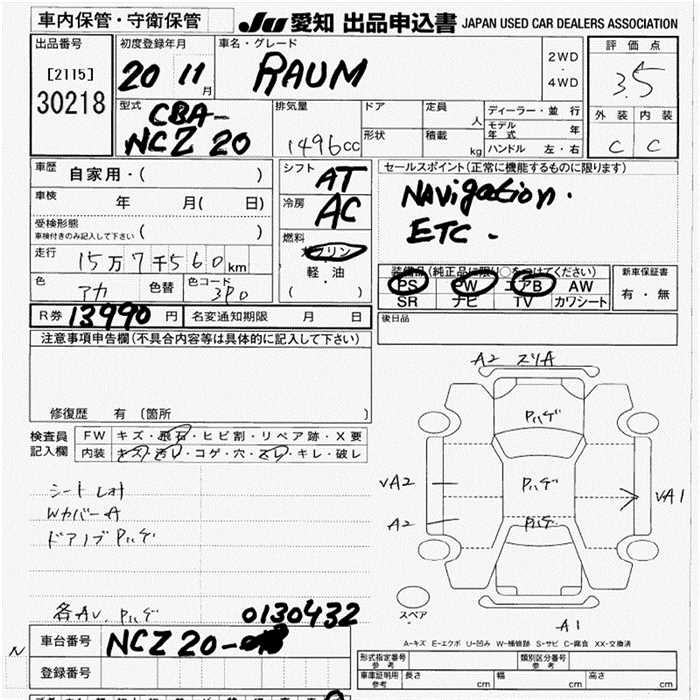 車内保管・守衛保管
JU 愛知 出品申込書 JAPAN USED CAR DEALERS ASSOCIATION
出品番号
[2115]
30218
初度登録年月
20 11 月
車名・グレード
RAUM
2WD
・
4WD
評価点
3.5
外装 内装
C C
型式
CBA-
NCZ 20
排気量
1496cc
ドア
定員
人
形状
積載
kg
ディーラー・並 行
モデル年式 年
ハンドル 左・右
車歴
自家用・( )
車検
年 月( 日)
受検形態
車検付きのみ記入して下さい ( )
走行
15万7千560km
色
アカ
色替
色コード
3P0
シフト
AT
冷房
AC
燃料
ガソリン
・
軽・油
( )
セールスポイント(正常に機能するものに限ります)
Navigation.
ETC.
装備品(純正品に限り○をつけてください)
PS PW エアB AW
SR ナビ TV カワシート
新車保証書
有・無
R券 13990円
名変通知期限 月 日
後日品
注意事項申告欄(不具合内容等は具体的に記入して下さい)
修復歴 有(箇所 )
検査員
記入欄
FW キズ・飛石・ヒビ割・リペア跡・X要
内装 キズ・汚レ・コゲ・穴・スレ・キレ・破レ
シート
WカバーA
ドアノブ Pハゲ
各AU、Pハゲ
A2 スリA
Pハゲ
VA2
Pハゲ
VA1
A2
Pハゲ
スペア
A1
A-キズ E-エクボ U-凹み W-補修跡 S-サビ C-腐食 XX-交換済
0130432
N
車台番号
NCZ 20-
登録番号
形式指定番号
参考
類別区分番号
参考
車庫証明用
参考
長さ cm
幅 cm
高さ cm